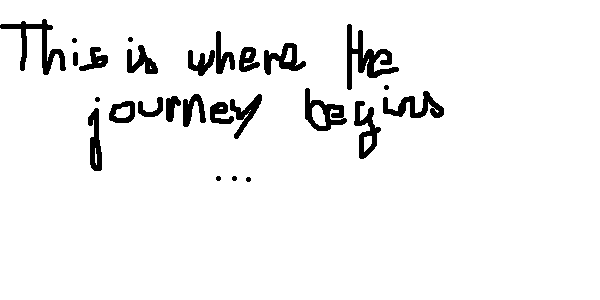 This is where the
journey begins
...